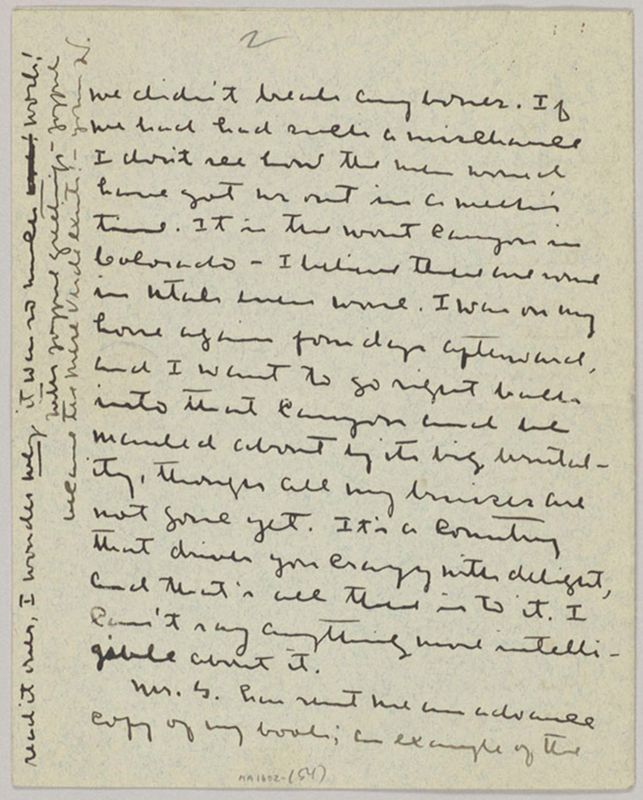 2
we didn't break any bones. If
we had had such a mischance
I don't see how the men would
have got us out in a week's
time. It is the worst Canyon in
Colorado - I believe there are some
in Utah even worse. I was on my
horse again four days afterward,
and I want to go right back
into that canyon and be
mauled about by its big brutal-
ity, though all my bruises are
not gone yet. It's a country
that drives you crazy with delight,
and that's all there is to it. I
can't say anything more intelli-
gible about it.
Mr. G. has sent me an advance
copy of my book; an example of the
read it over, I wonder why it was so much work!
With joyful greetings - joyful
MA1602-(54)